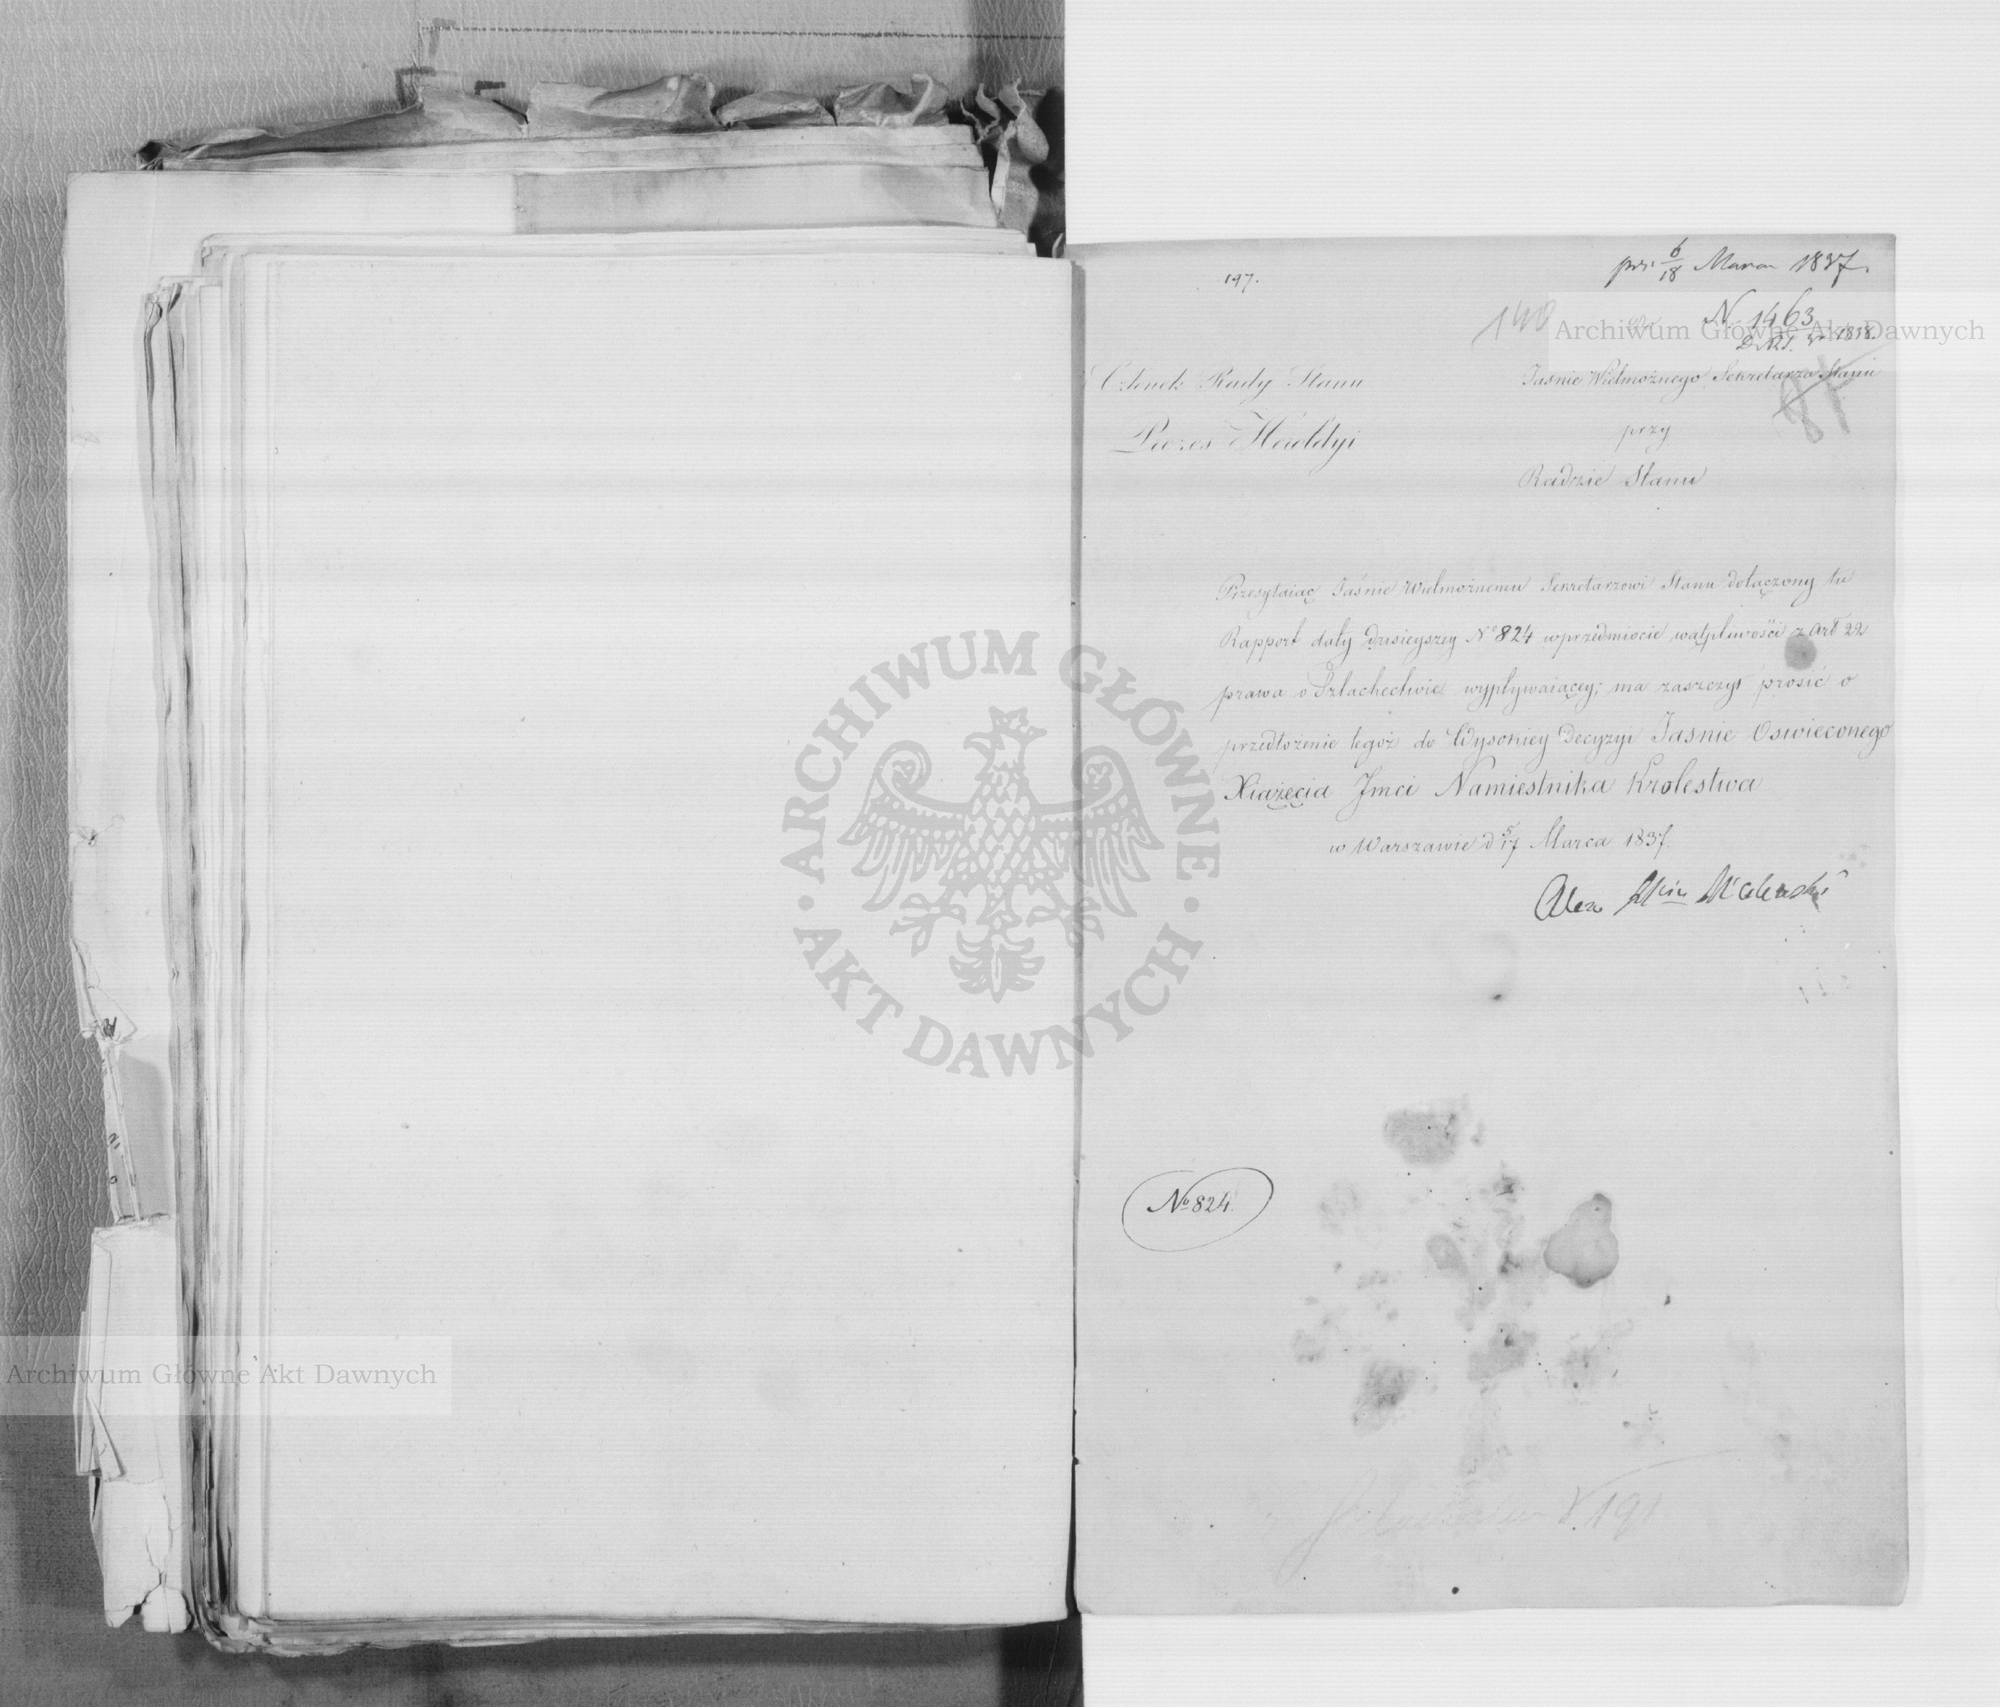 197.
pr: 6/18 Marca 1837.
140
N. 1463
1838.
Członek Rady Stanu
Prezes Heroldyi
Jaśnie Wielmożnego Sekretarza Stanu
przy
Radzie Stanu
Przesyłaiąc Jaśnie Wielmożnemu Sekretarzowi Stanu dołączony tu
Rapport daty dzisieyszey No 824 wprzedmiocie wątpliwości z Art 22
prawa o Szlachectwie wypływaiącey; ma zaszczyt prosić o
przedłożenie tegoż do Wysokiey Decyzyi Jaśnie Oswieconego
Xiążęcia Jmci Namiestnika Krolestwa
w Warszawie d 5/17 Marca 1837.
No 824.
191
Archiwum Główne Akt Dawnych
Archiwum Główne Akt Dawnych
ARCHIWUM GŁÓWNE AKT DAWNYCH